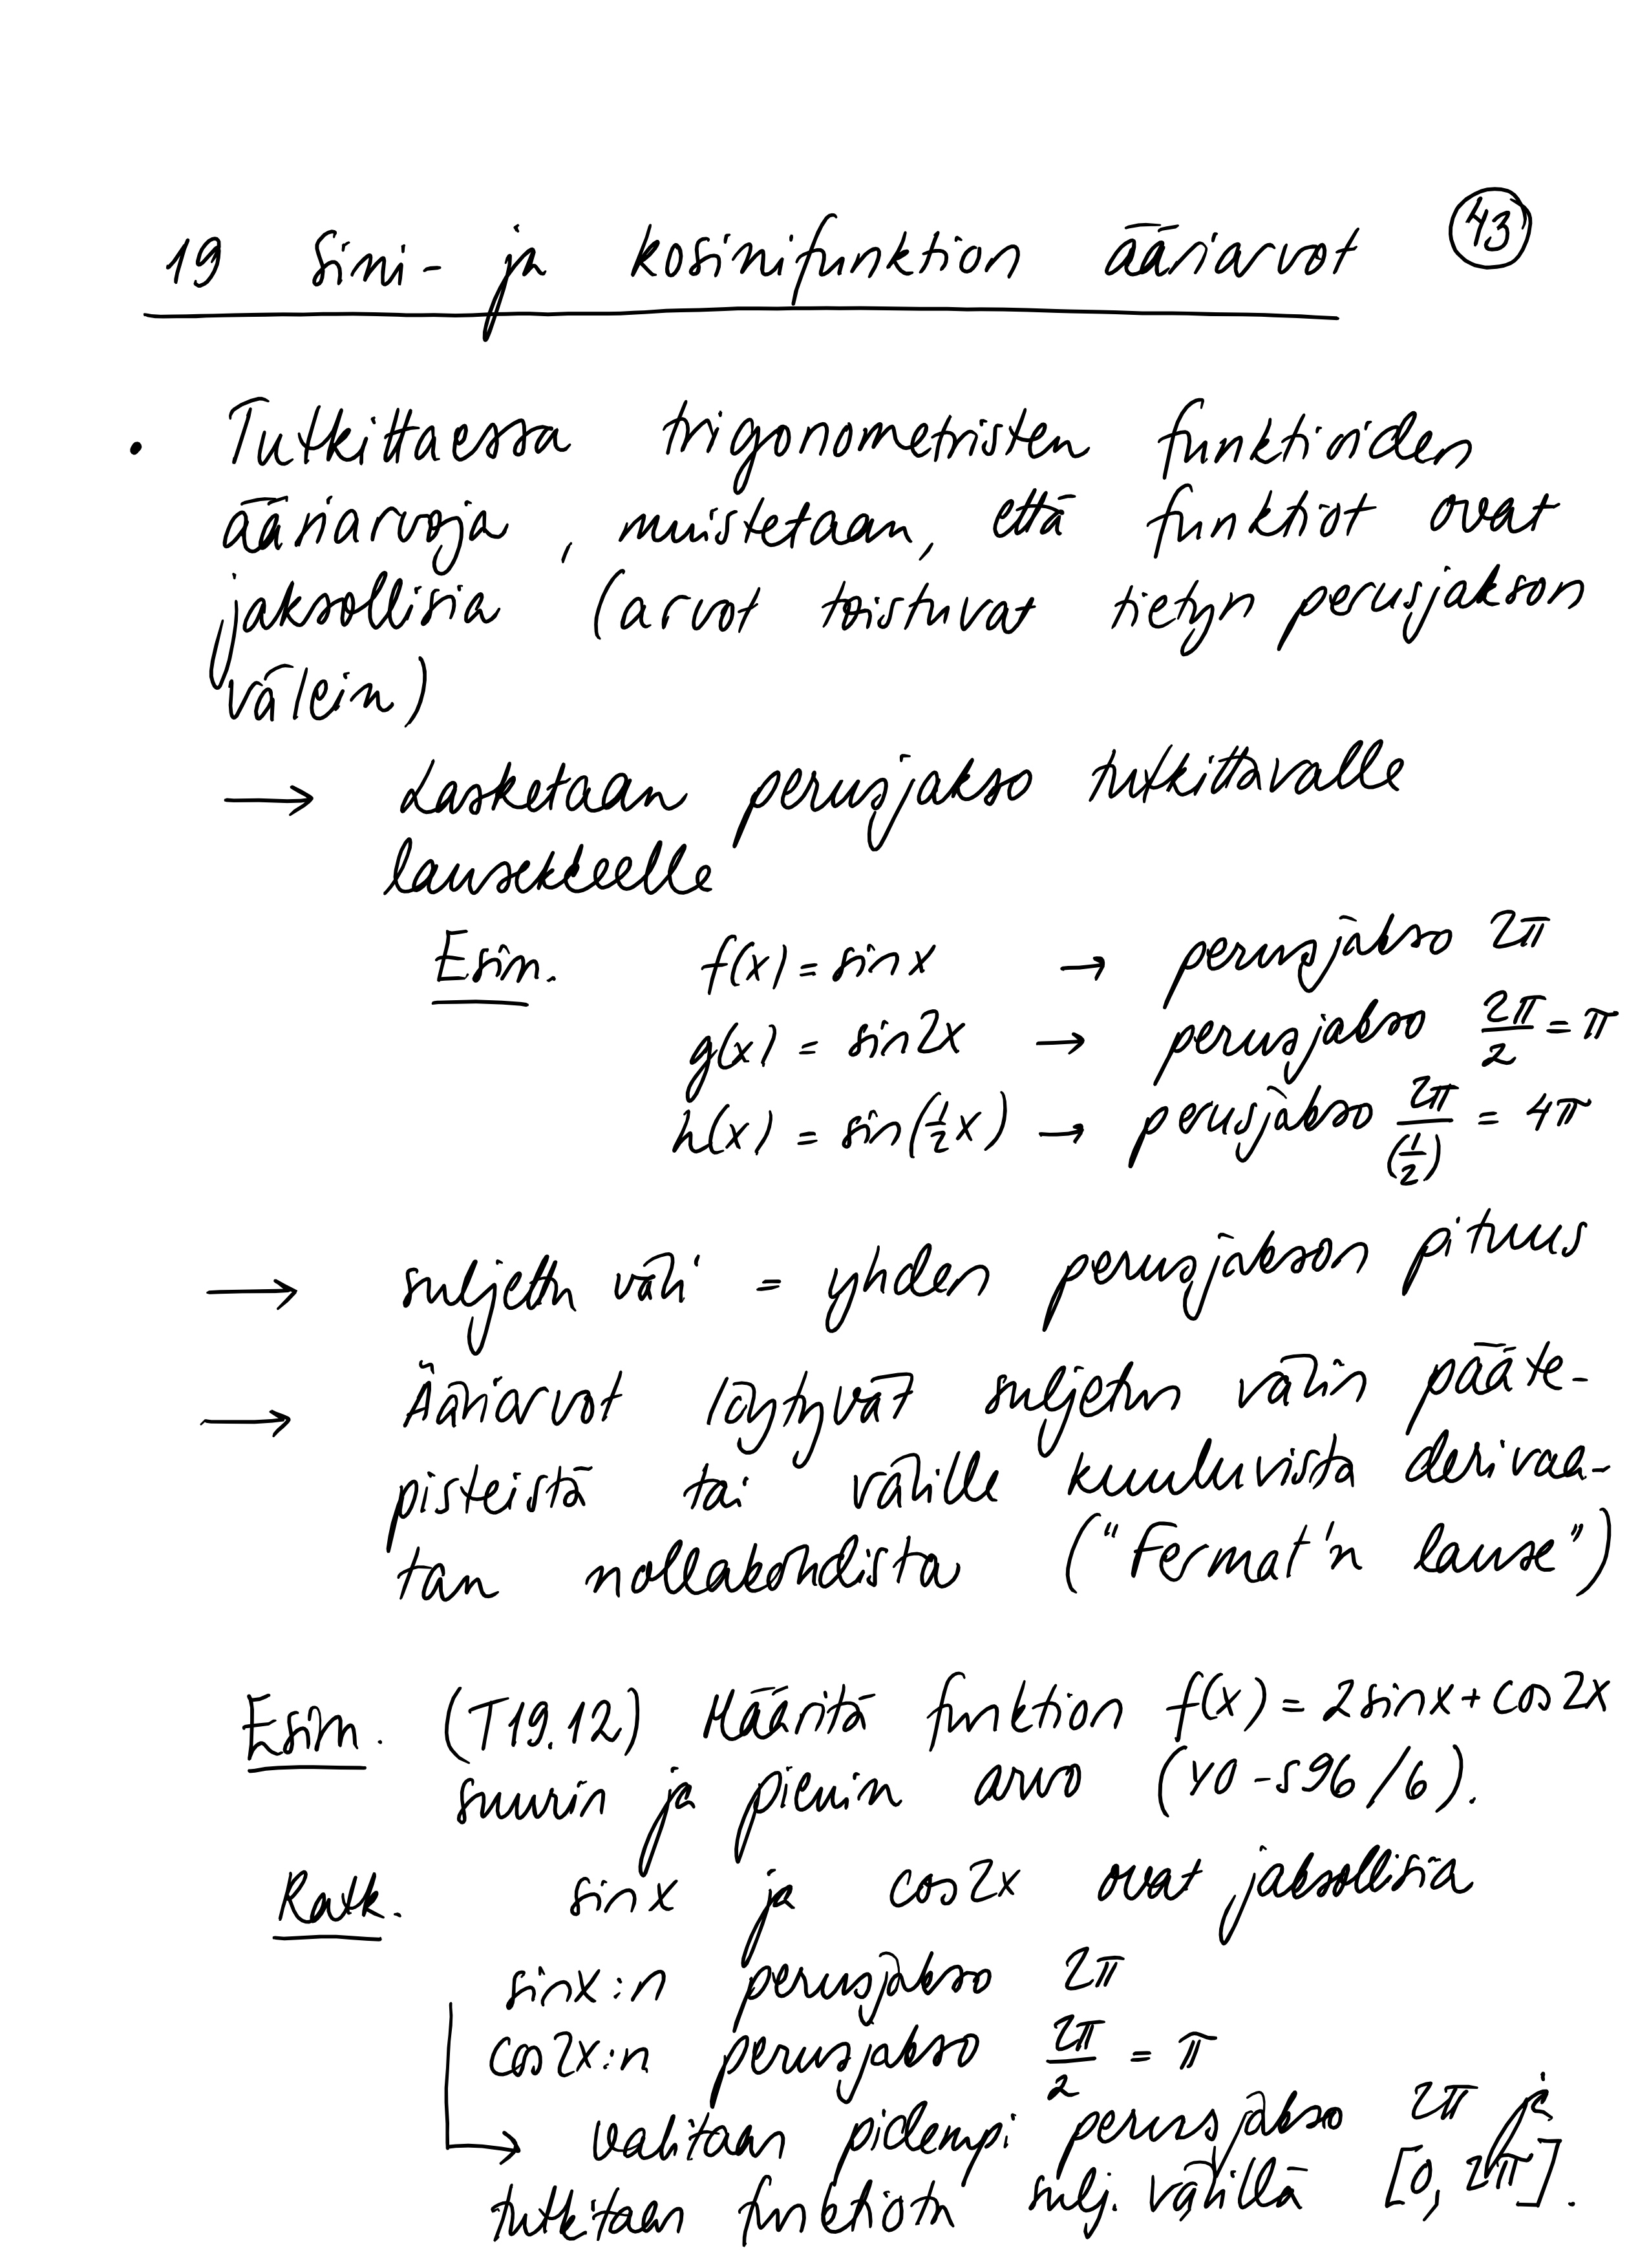 19 Sini- ja kosinifunktion ääriarvot 43
• Tutkittaessa trigonometristen funktioiden
ääriarvoja, muistetaan, että funktiot ovat
jaksollisia (arvot toistuvat tietyn perusjakson
välein)
→ Lasketaan perusjakso tutkittavalle
lausekkeelle
Esim. f(x) = sin x → perusjakso 2π
g(x) = sin2x → perusjakso 2π/2 = π
h(x) = sin(1/2 x) → perusjakso 2π/(1/2) = 4π
→ suljettu väli = yhden perusjakson pituus
→ Ääriarvot löytyvät suljetun välin pääte-
pisteistä tai välille kuuluvista derivaa-
tan nollakohdista ("Fermat'n lause")
Esim. (T19.12) Määritä funktion f(x) = 2sinx + cos2x
suurin ja pienin arvo (YO-S96/6).
Ratk. sin x ja cos2x ovat jaksollisia
sinx:n perusjakso 2π
cos2x:n perusjakso 2π/2 = π
→ valitaan pidempi perusjakso 2π ja
tutkitaan funktiota sulj. välillä [0, 2π].